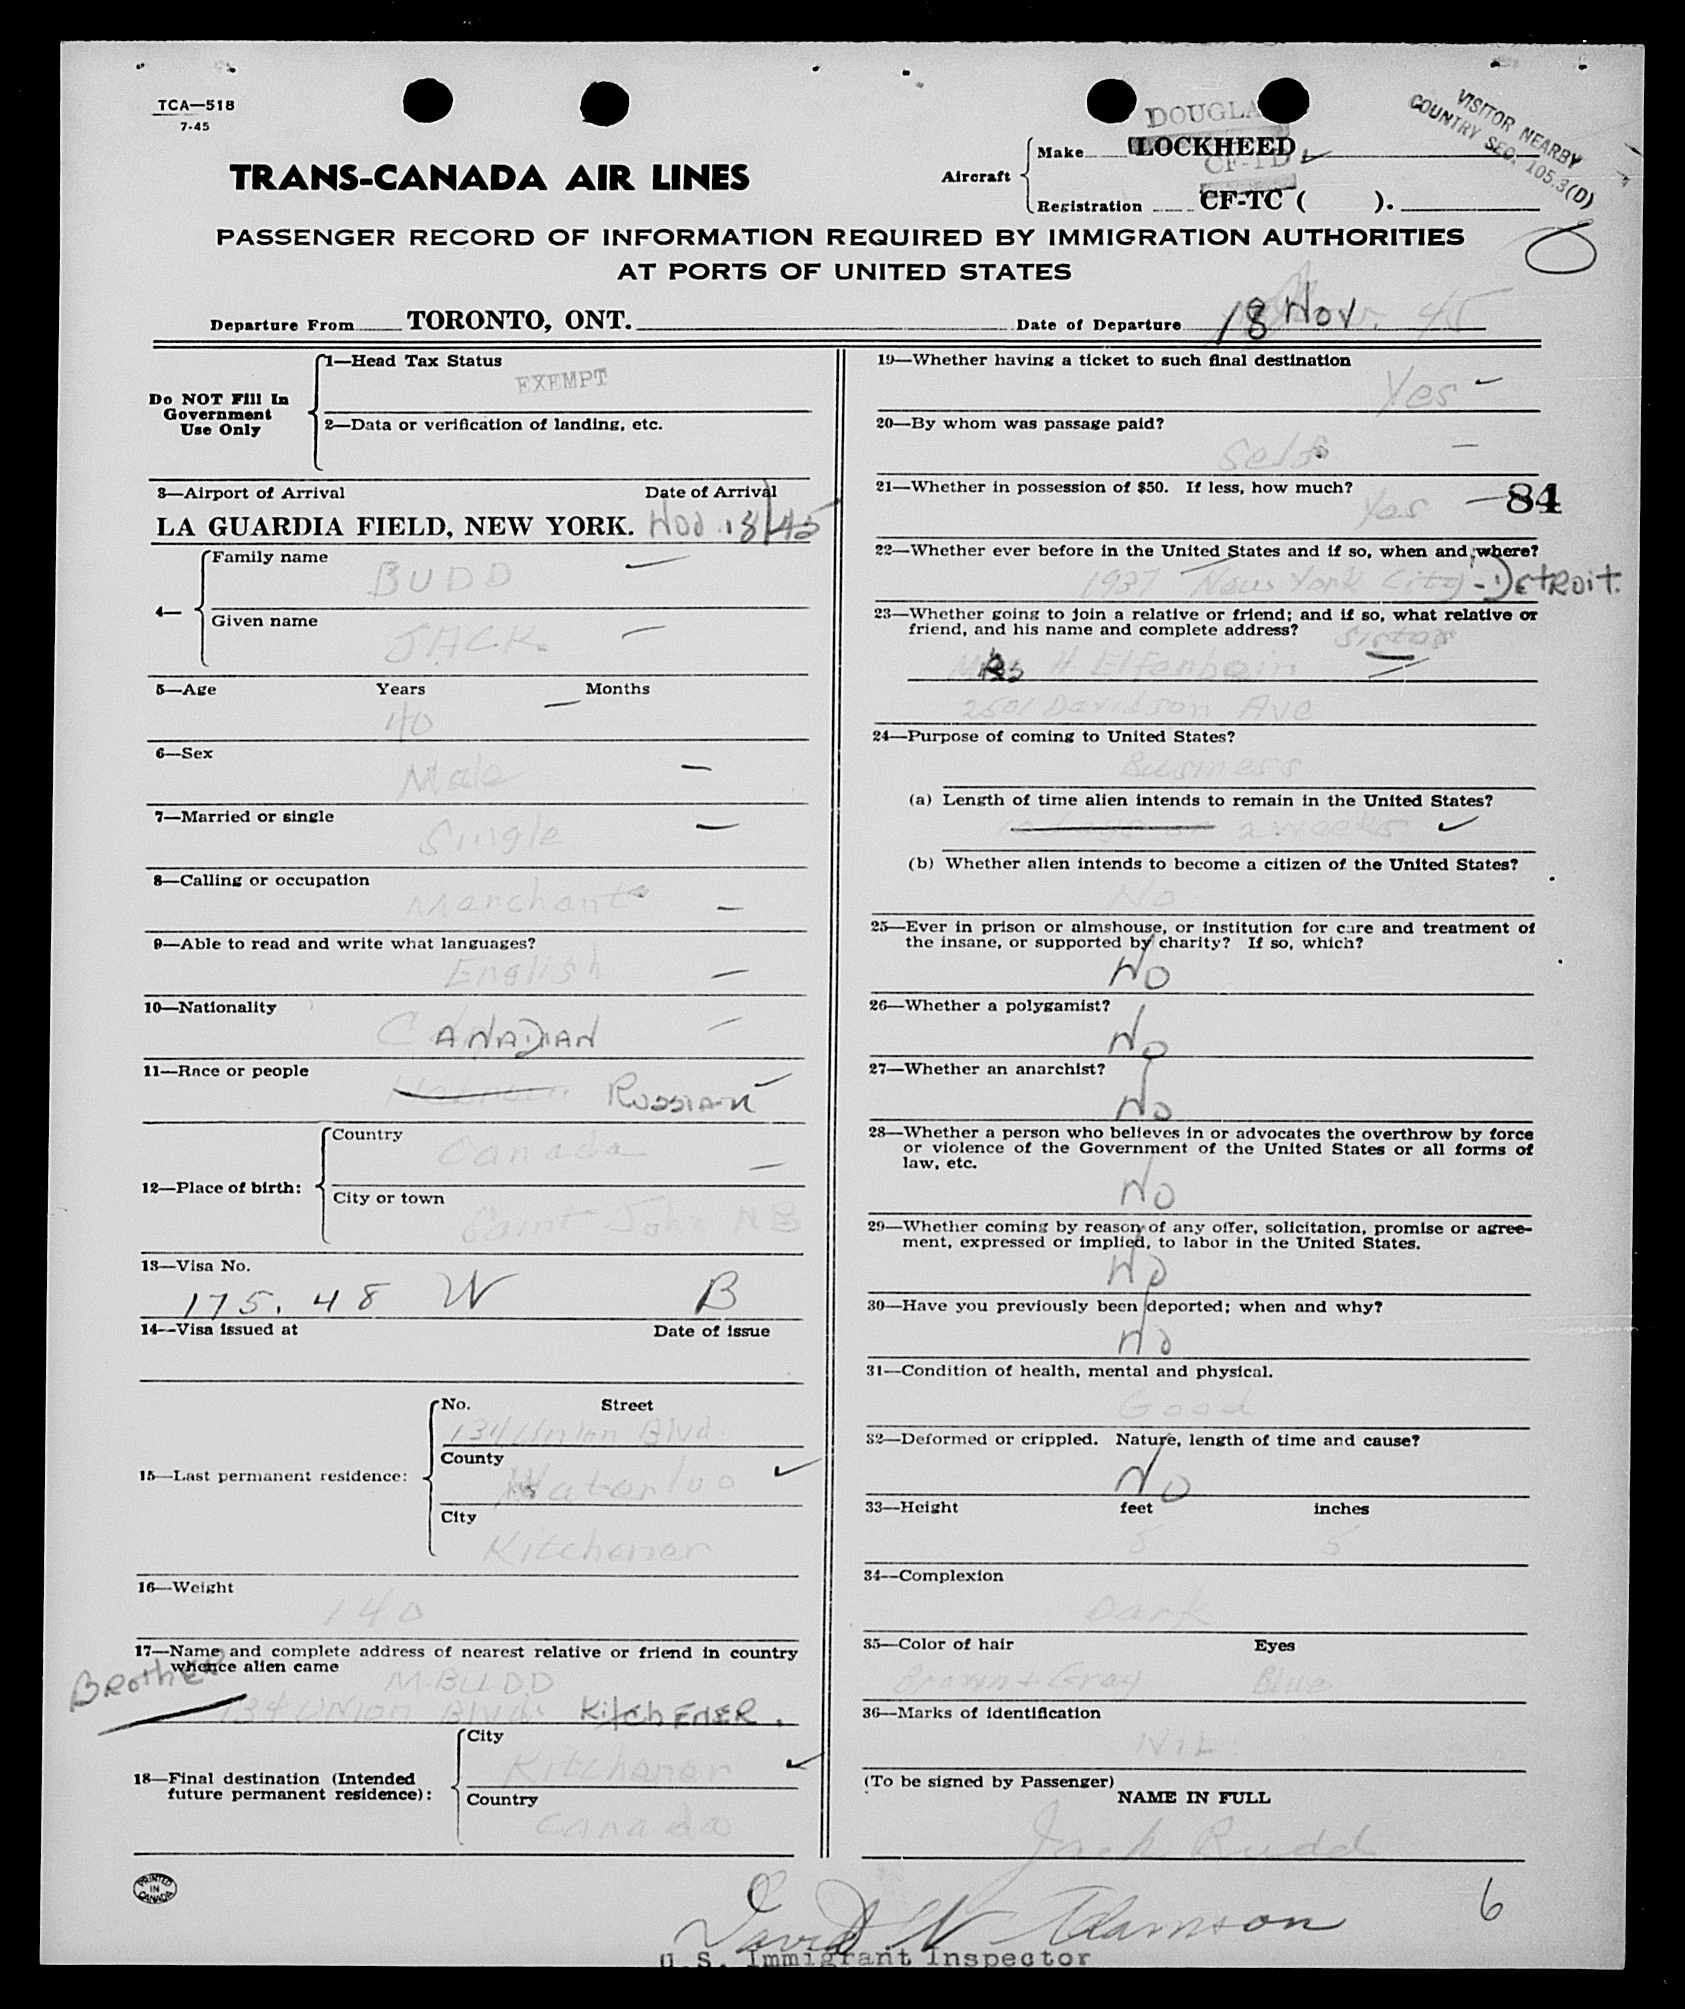 TCA—518
7-45
VISITOR NEARBY
COUNTRY SEC. 105.3(D)
DOUGLA
Aircraft
Make LOCKHEED
CF-TD
Registration CF-TC ( ).
TRANS-CANADA AIR LINES
PASSENGER RECORD OF INFORMATION REQUIRED BY IMMIGRATION AUTHORITIES
AT PORTS OF UNITED STATES
Departure From TORONTO, ONT.
Date of Departure 18 Nov. 45
Do NOT Fill In
Government
Use Only
1—Head Tax Status
EXEMPT
2—Data or verification of landing, etc.
3—Airport of Arrival Date of Arrival
LA GUARDIA FIELD, NEW YORK. Nov 18/45
4—
Family name
BUDD
Given name
JACK.
5—Age Years Months
40
6—Sex
Male
7—Married or single
Single
8—Calling or occupation
Merchant
9—Able to read and write what languages?
English
10—Nationality
CANADIAN
11—Race or people
Hebrew RUSSIAN
12—Place of birth:
Country
Canada
City or town
Saint John NB
13—Visa No.
175.48 W B
14—Visa issued at Date of issue
15—Last permanent residence:
No. Street
134 Union Blvd.
County
Waterloo
City
Kitchener
16—Weight
140
17—Name and complete address of nearest relative or friend in country
whence alien came
BROTHER
M. BUDD
134 UNION Blvd. KITCHENER.
18—Final destination (Intended
future permanent residence):
City
Kitchener
Country
Canada
PRINTED
IN
CANADA
19—Whether having a ticket to such final destination
Yes
20—By whom was passage paid?
Self
21—Whether in possession of $50. If less, how much?
Yes 84
22—Whether ever before in the United States and if so, when and where?
1937 New York City - DETROIT.
23—Whether going to join a relative or friend; and if so, what relative or
friend, and his name and complete address?
Sister
Mrs H Elfenbein
2501 Davidson Ave
24—Purpose of coming to United States?
Business
(a) Length of time alien intends to remain in the United States?
10 days or 2 weeks
(b) Whether alien intends to become a citizen of the United States?
No
25—Ever in prison or almshouse, or institution for care and treatment of
the insane, or supported by charity? If so, which?
No
26—Whether a polygamist?
No
27—Whether an anarchist?
No
28—Whether a person who believes in or advocates the overthrow by force
or violence of the Government of the United States or all forms of
law, etc.
No
29—Whether coming by reason of any offer, solicitation, promise or agree-
ment, expressed or implied, to labor in the United States.
No
30—Have you previously been deported; when and why?
No
31—Condition of health, mental and physical.
Good
32—Deformed or crippled. Nature, length of time and cause?
No
33—Height feet inches
5 5
34—Complexion
Dark
35—Color of hair Eyes
Brown + Gray Blue
36—Marks of identification
NIL
(To be signed by Passenger)
NAME IN FULL
Jack Budd
David W Adamson
6
U.S. Immigrant Inspector